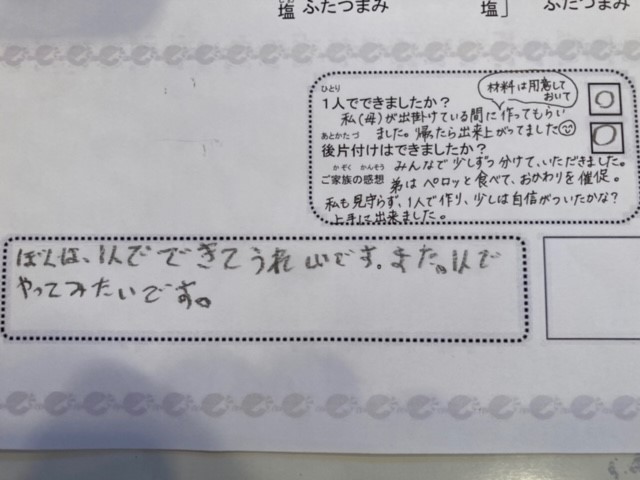 塩 ふたつまみ
塩」 ふたつまみ
材料は用意して
おいて
ひとり
1人でできましたか? ○
私(母)が出掛けている間に作ってもらい
ました。帰たら出来上がってました
あとかたづ
後片付けはできましたか? ○
みんなで少しずつ分けて、いただきました。
かぞく かんそう
ご家族の感想 弟はペロッと食べて、おかわりを催促。
私も見守らず、1人で作り、少しは自信がついたかな?
上手に出来ました。
ぼんは、1人でできてうれしいです。また。1人で
やってみたいです。